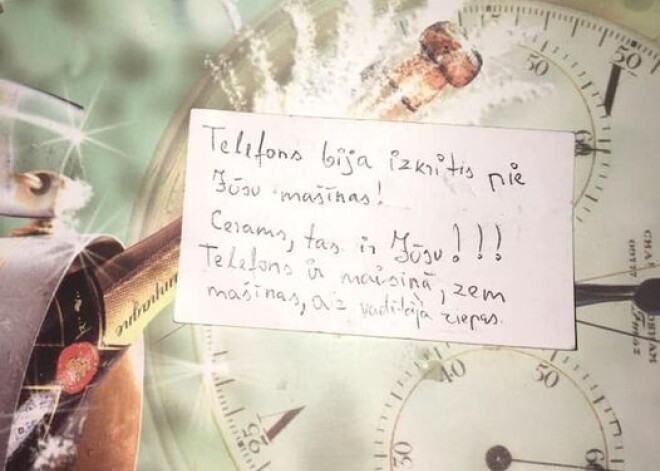 Telefons bija izkritis pie
Jūsu mašīnas!
Cerams, tas ir Jūsu!!!
Telefons ir maisiņā, zem
mašīnas, aiz vadītāja riepas.
Champagne
50
50
60
40
50
30
05